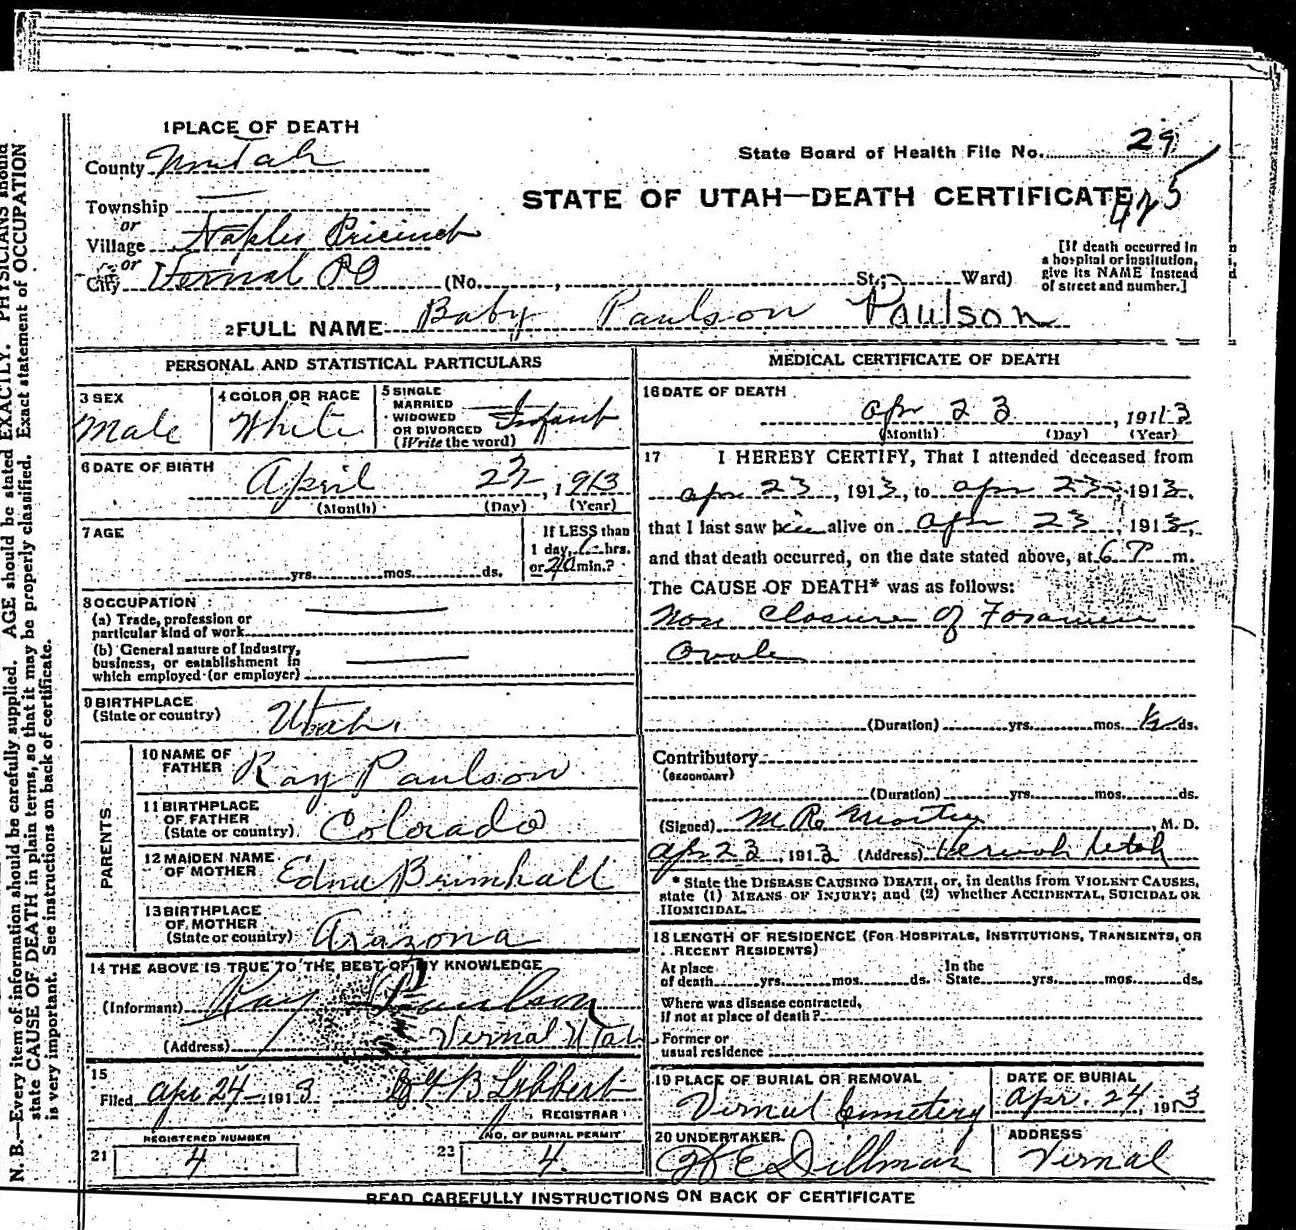 1 PLACE OF DEATH
County Uintah
State Board of Health File No. 29
STATE OF UTAH—DEATH CERTIFICATE
425
Township —
or
Village Naples Pricinct
or
City Vernal PO (No. , St; Ward)
[If death occurred in
a hospital or institution,
give its NAME instead
of street and number.]
2 FULL NAME Baby Paulson Paulson
PERSONAL AND STATISTICAL PARTICULARS
3 SEX
Male
4 COLOR OR RACE
White
5 SINGLE
MARRIED
WIDOWED
OR DIVORCED
(Write the word)
Infant
6 DATE OF BIRTH
April 23, 1913
(Month) (Day) (Year)
7 AGE
yrs. mos. ds.
If LESS than
1 day, hrs.
or min.?
8 OCCUPATION
(a) Trade, profession or
particular kind of work
(b) General nature of Industry,
business, or establishment in
which employed (or employer)
9 BIRTHPLACE
(State or country) Utah.
PARENTS
10 NAME OF
FATHER Ray Paulson
11 BIRTHPLACE
OF FATHER
(State or country) Colorado
12 MAIDEN NAME
OF MOTHER Edna Brimhall
13 BIRTHPLACE
OF MOTHER
(State or country) Arazona
14 THE ABOVE IS TRUE TO THE BEST OF MY KNOWLEDGE
(Informant) Ray Paulson
(Address) Vernal Utah
15
Filed Apr 24 1913 B Lobbert
REGISTRAR
REGISTERED NUMBER
21 4
NO. OF BURIAL PERMIT
23 4
MEDICAL CERTIFICATE OF DEATH
16 DATE OF DEATH
Apr 23, 1913
(Month) (Day) (Year)
17 I HEREBY CERTIFY, That I attended deceased from
apr 23, 1913, to apr 23, 1913,
that I last saw him alive on apr 23, 1913,
and that death occurred, on the date stated above, at 6 P m.
The CAUSE OF DEATH* was as follows:
Non Closure of Foramen
Ovale
(Duration) yrs. mos. ½ ds.
Contributory
(SECONDARY)
(Duration) yrs. mos. ds.
(Signed) M. D.
apr 23, 1913 (Address) Vernal Utah
* State the DISEASE CAUSING DEATH, or, in deaths from VIOLENT CAUSES,
state (1) MEANS OF INJURY; and (2) whether ACCIDENTAL, SUICIDAL OR
HOMICIDAL.
18 LENGTH OF RESIDENCE (FOR HOSPITALS, INSTITUTIONS, TRANSIENTS, OR
RECENT RESIDENTS)
At place
of death yrs. mos. ds.
In the
State yrs. mos. ds.
Where was disease contracted,
if not at place of death?
Former or
usual residence
19 PLACE OF BURIAL OR REMOVAL
Vernal Cemetery
DATE OF BURIAL
Apr. 24, 1913
20 UNDERTAKER
Dillman
ADDRESS
Vernal
READ CAREFULLY INSTRUCTIONS ON BACK OF CERTIFICATE
N. B.—Every item of information should be carefully supplied. AGE should be stated EXACTLY. PHYSICIANS should
state CAUSE OF DEATH in plain terms, so that it may be properly classified. Exact statement of OCCUPATION
is very important. See instructions on back of certificate.